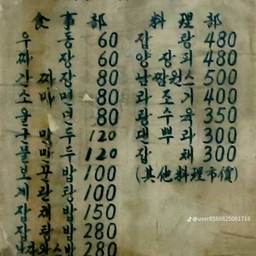 食事部
우동 60
짜장 60
간짜장 80
소마멘 80
울면 80
만두 120
물만두 120
보끈밥 100
계란탕 100
잡채밥 150
잡탕밥 280
280
料理部
잡탕 480
양장피 480
난짬원스 500
라조기 400
탕수육 350
덴뿌라 300
잡채 300
(其他料理市價)
@user8588825061718